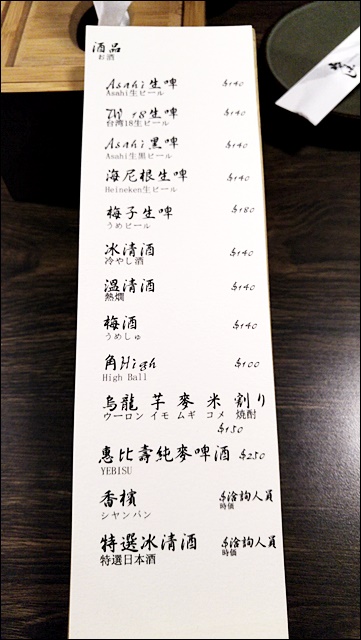 酒品
お酒
Asahi生啤 $140
Asahi生ビール
TW 18生啤 $140
台湾18生ビール
Asahi黑啤 $140
Asahi生黒ビール
海尼根生啤 $140
Heineken生ビール
梅子生啤 $180
うめビール
冰清酒 $140
冷やし酒
溫清酒 $140
熱燗
梅酒 $140
うめしゅ
角High $100
High Ball
烏龍 芋 麥 米 割り
ウーロン イモ ムギ コメ 焼酎
$150
惠比壽純麥啤酒 $250
YEBISU
香檳 $洽詢人員
シャンパン 時価
特選冰清酒 $洽詢人員
特選日本酒 時価